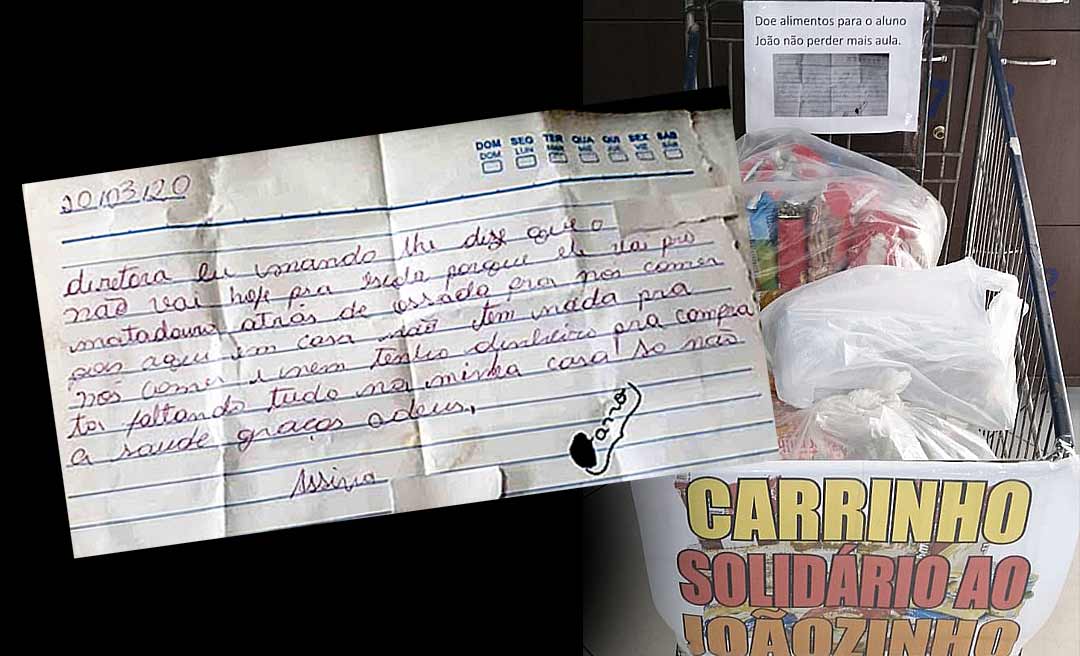 20/03/20
DOM SEG TER QUA QUI SEX SÁB
DOM LUN VIE SÁB
diretora eu mando lhe dize que o
não vai hoje pra iscola porque ele vai pro
matadouro atrás de ossada pra nos comer
pois aqui em casa não tem nada pra
nós comer e nem tenho dinheiro pra compra
ta faltando tudo na minha casa so não
a saude graças a deus,
Assina
Doe alimentos para o aluno
João não perder mais aula.
CARRINHO
SOLIDÁRIO AO
JOÃOZINHO